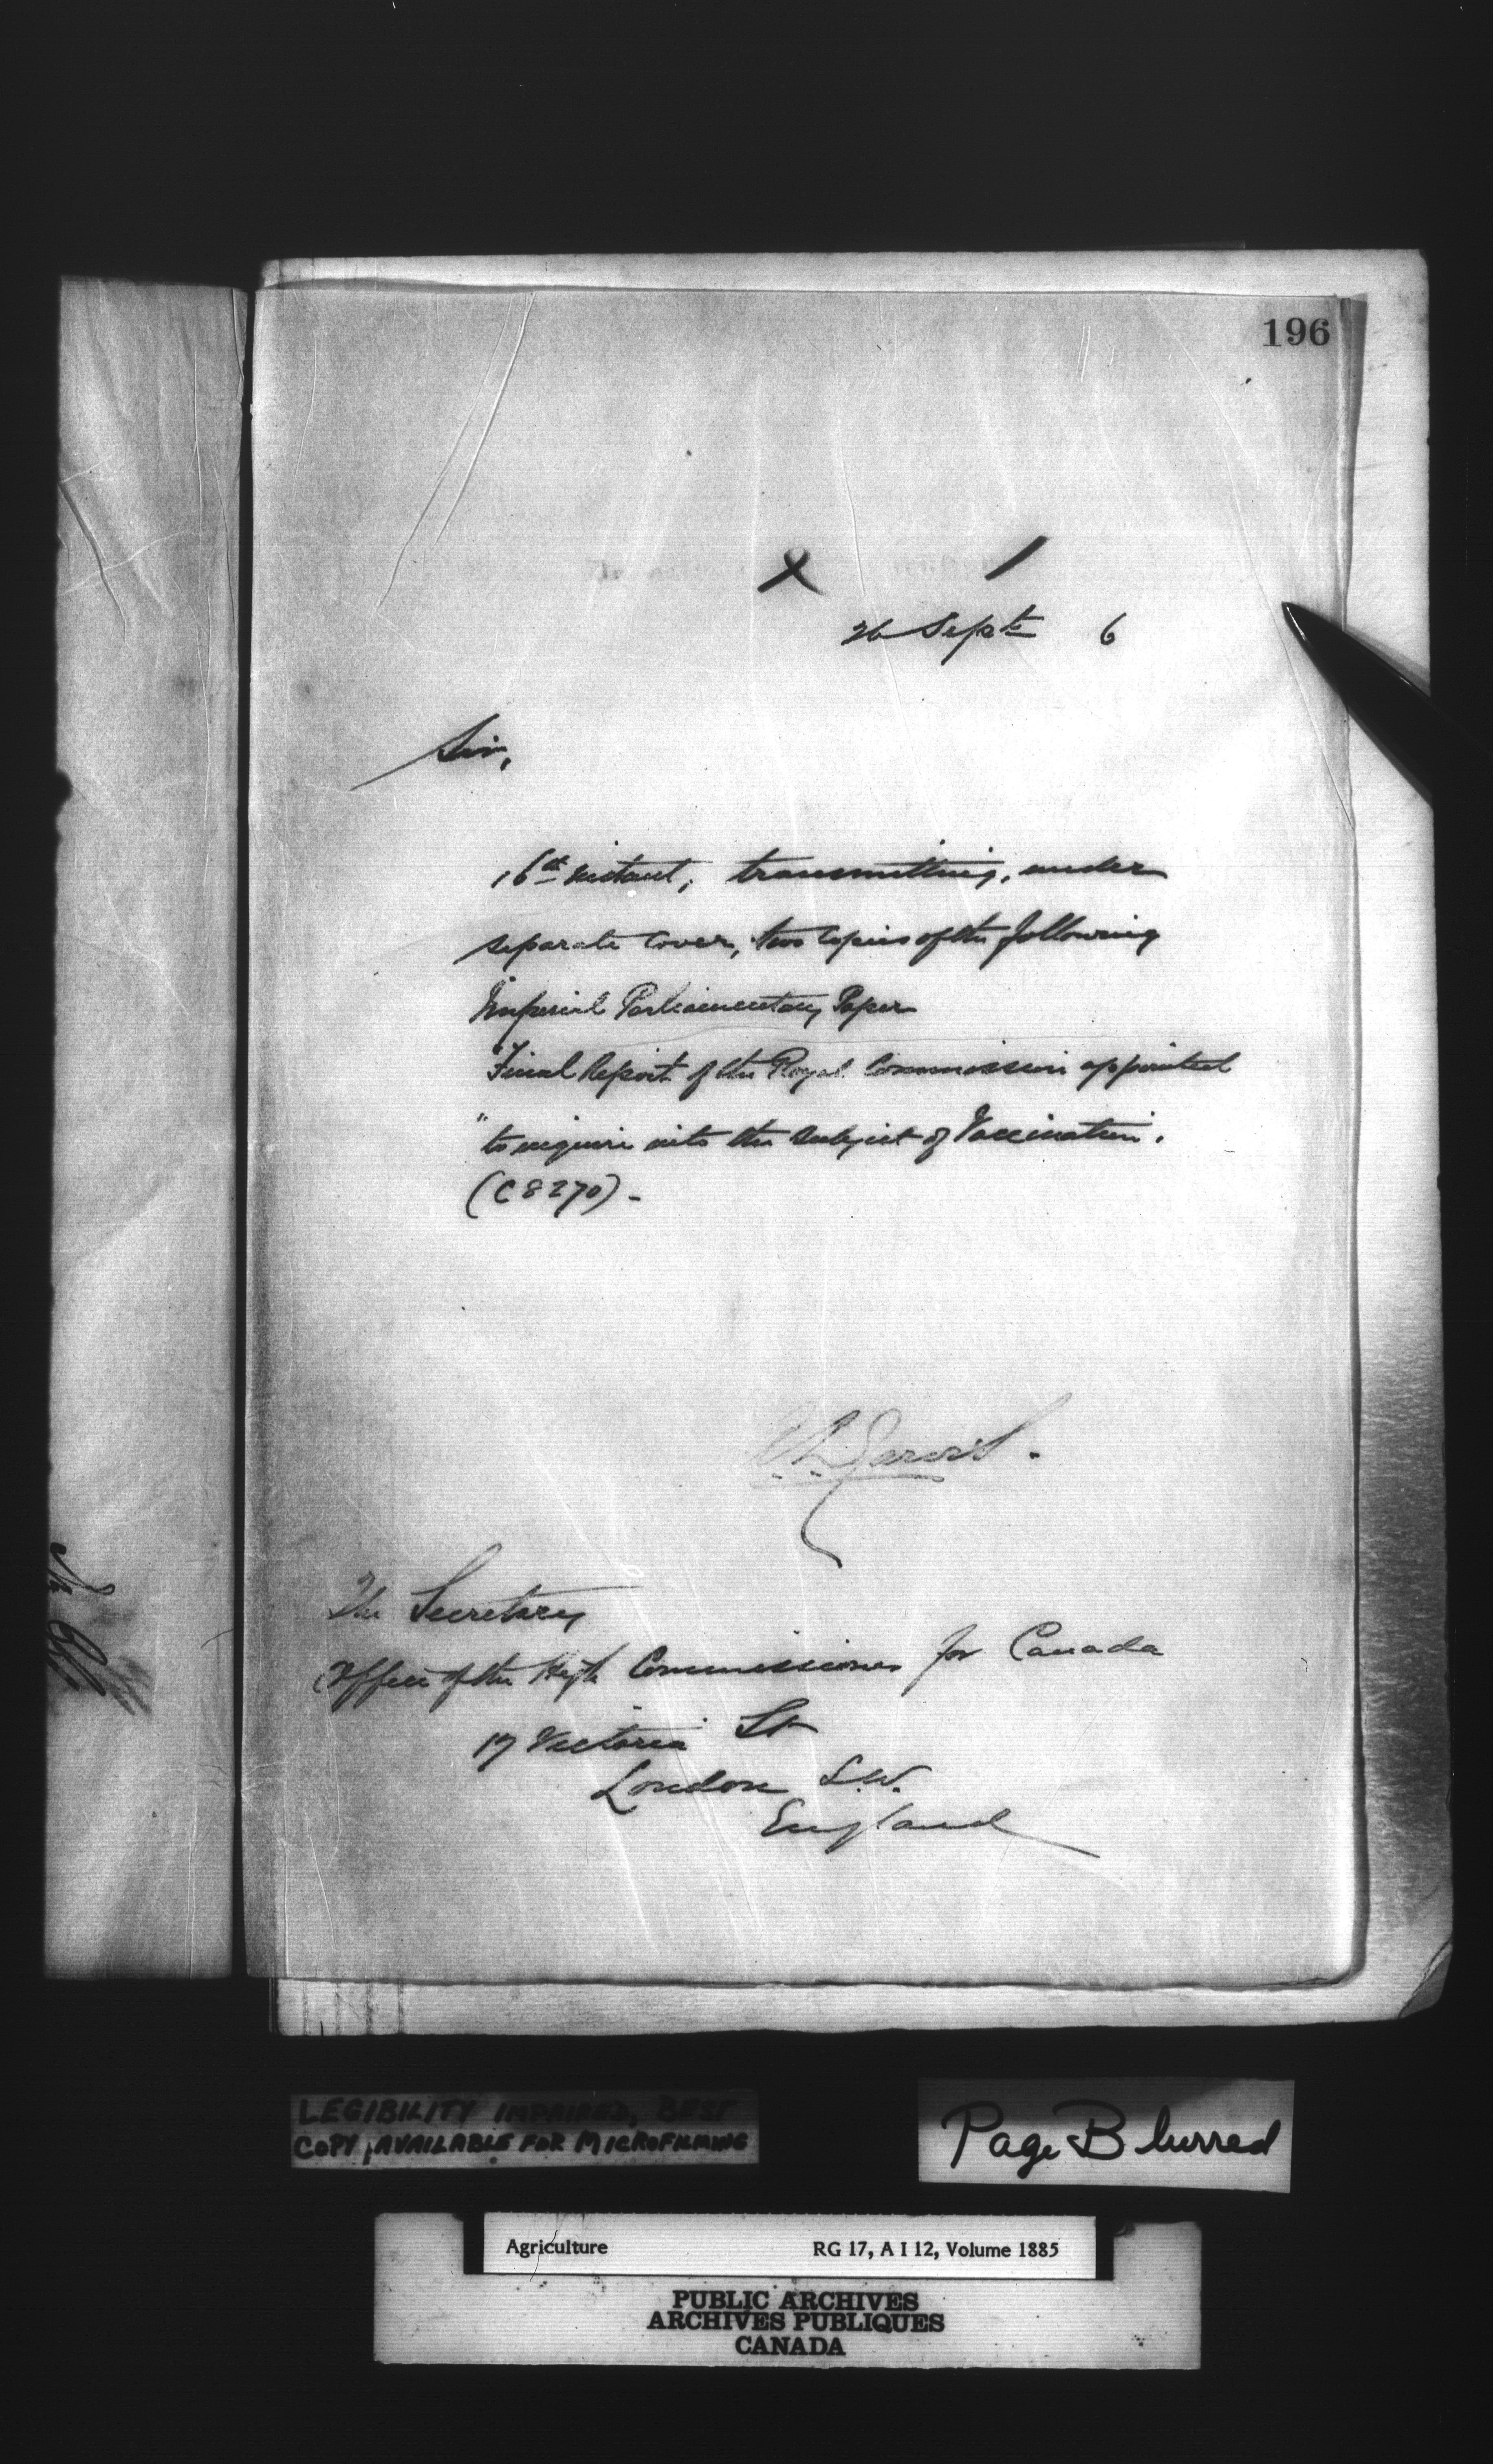 196
26 Sept 6
Sir,
16th instant, transmitting, under
separate cover, two copies of the following
Imperial Parliamentary Paper
"Final Report of the Royal Commission appointed
"to inquire into the subject of Vaccination.
(C 8270) -
Jarvis.
The Secretary
Office of the High Commissioner for Canada
17 Victoria St
London S.W.
England
LEGIBILITY IMPAIRED, BEST
COPY AVAILABLE FOR MICROFILMING
Page Blurred
Agriculture RG 17, A I 12, Volume 1885
PUBLIC ARCHIVES
ARCHIVES PUBLIQUES
CANADA